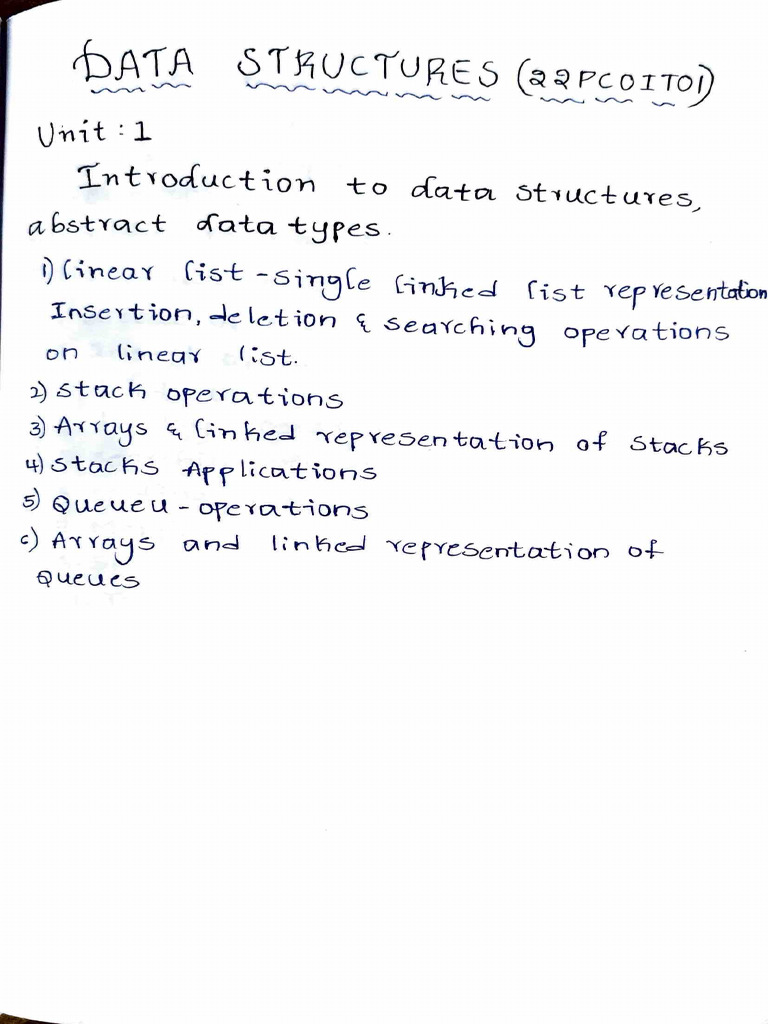 DATA STRUCTURES (22PC0IT01)
Unit : 1
Introduction to data structures,
abstract data types.
1) linear list - single linked list representation
Insertion, deletion & searching operations
on linear list.
2) stack operations
3) Arrays & linked representation of stacks
4) stacks Applications
5) Queueu - operations
6) Arrays and linked representation of
Queues